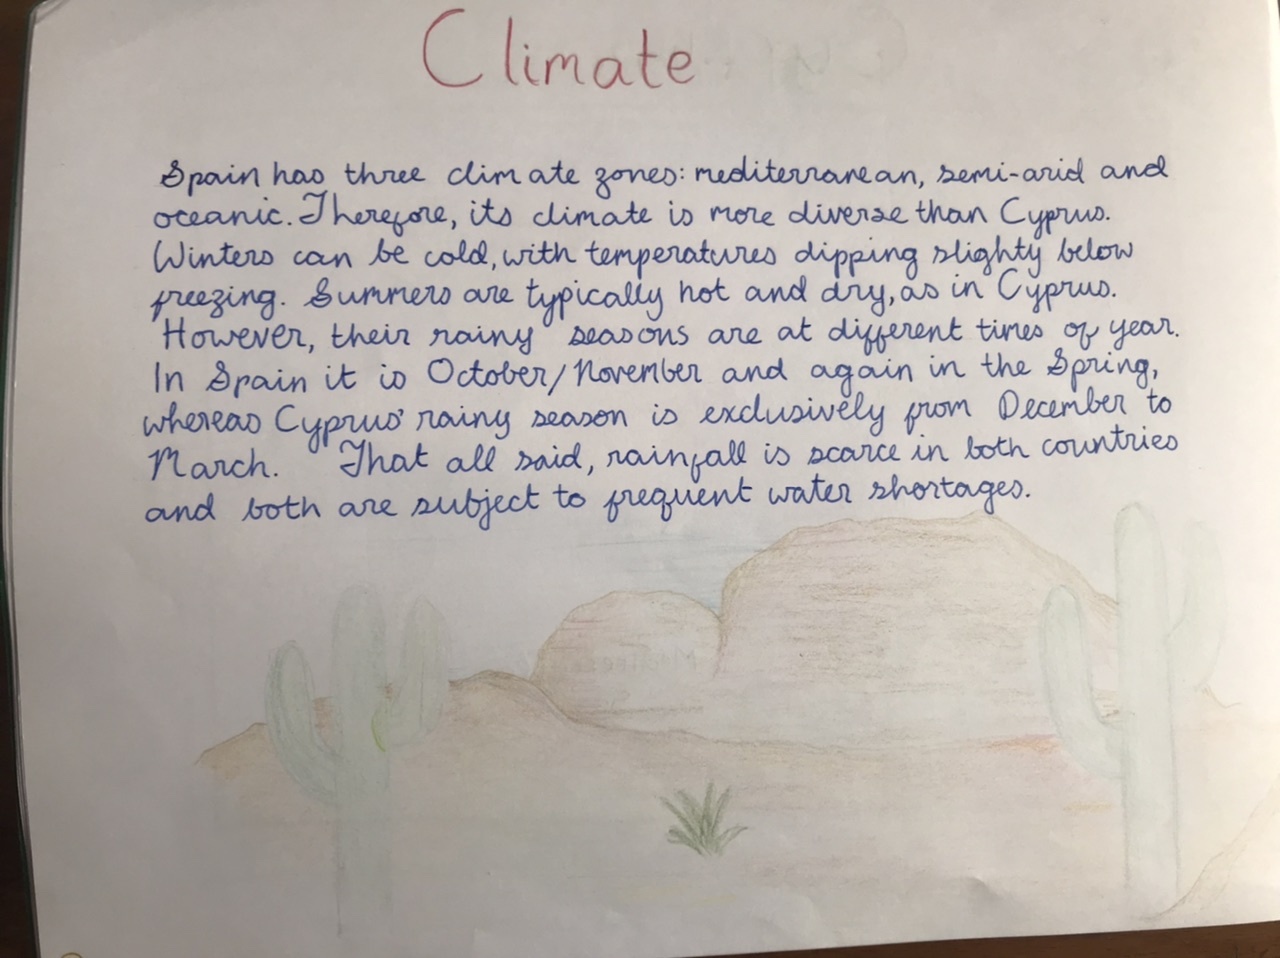 Climate
Spain has three climate zones: mediterranean, semi-arid and
oceanic. Therefore, its climate is more diverse than Cyprus.
Winters can be cold, with temperatures dipping slighty below
freezing. Summers are typically hot and dry, as in Cyprus.
However, their rainy seasons are at different times of year.
In Spain it is October/November and again in the Spring,
whereas Cyprus' rainy season is exclusively from December to
March. That all said, rainfall is scarce in both countries
and both are subject to frequent water shortages.